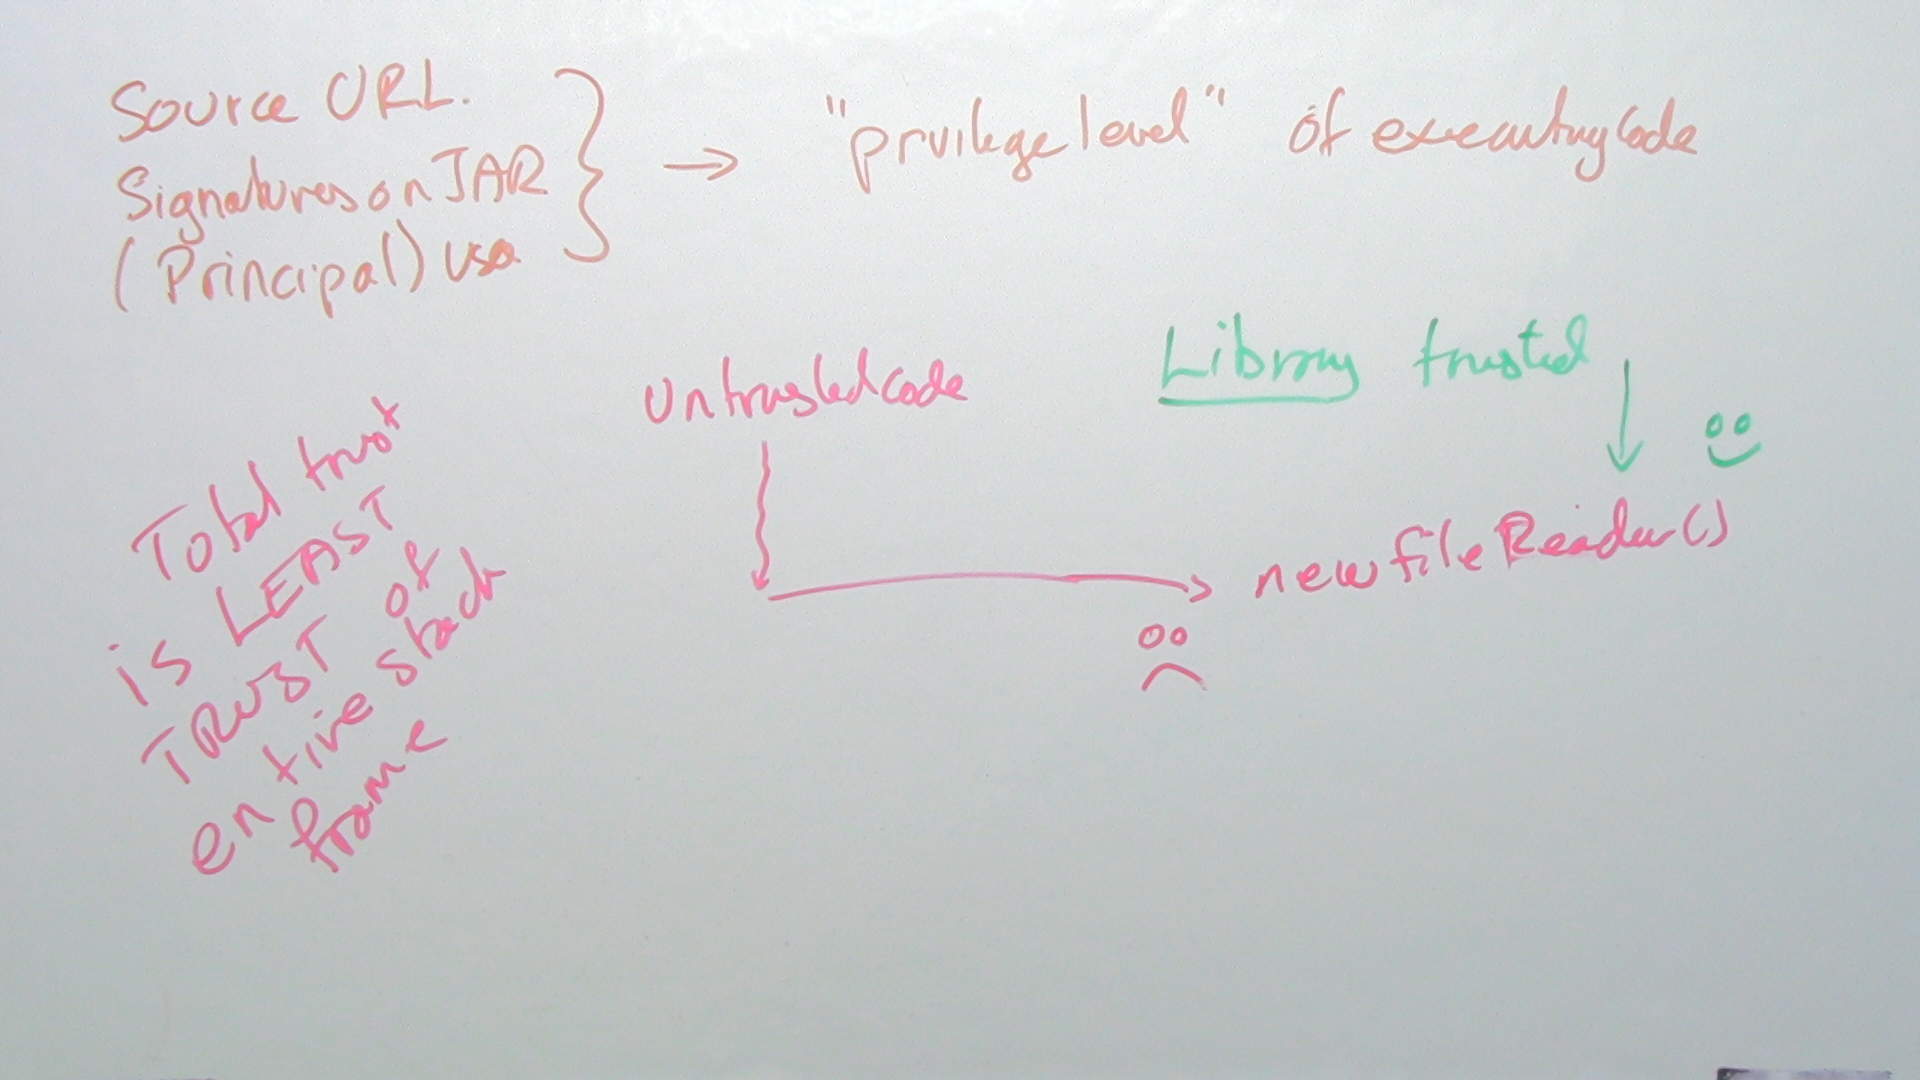 Source URL.
Signatures on JAR
(Principal) user
"privilege level" of executing code
Library trusted
untrusted code
new fileReader()
Total trust
is LEAST
TRUST of
entire stack
frame